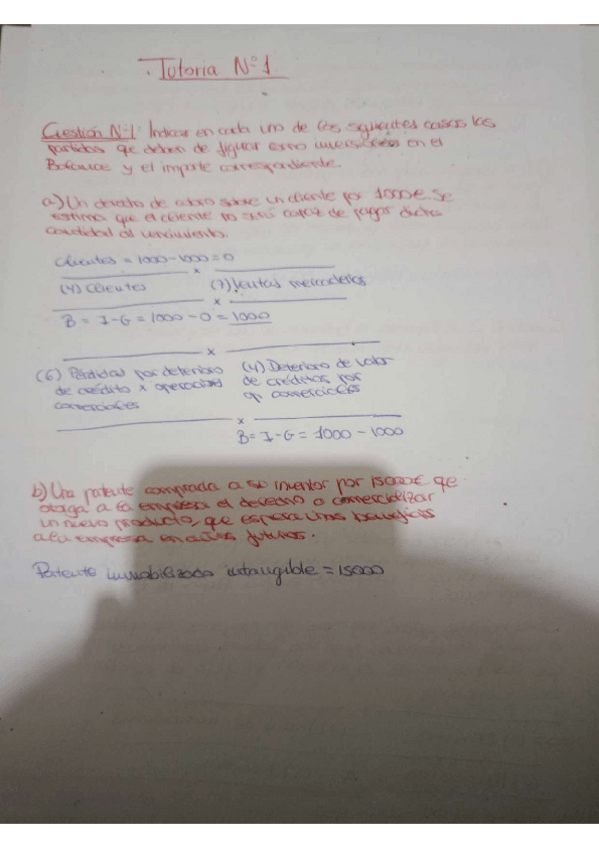 Tutoria Nº1
Cuestión Nº1: Indicar en cada uno de los siguientes casos las
partidas que deben de figurar como inversiones en el
Balance y el importe correspondiente.
a) Un derecho de cobro sobre un cliente por 1000€. Se
estima que el cliente no será capaz de pagar dicha
cantidad al vencimiento.
Clientes = 1000-1000 = 0
x
(4) Clientes (7) Ventas mercaderías
x
B = I-G = 1000 - 0 = 1000
x
(6) Pérdidas por deterioro (4) Deterioro de valor
de crédito x operaciones de créditos por
comerciales op comerciales
x
B = I-G = 1000 - 1000
b) Una patente comprada a su inventor por 15000€ que
otorga a la empresa el derecho a comercializar
un nuevo producto, que espera unos beneficios
a la empresa en años futuros.
Patente inmobilizado intangible = 15000